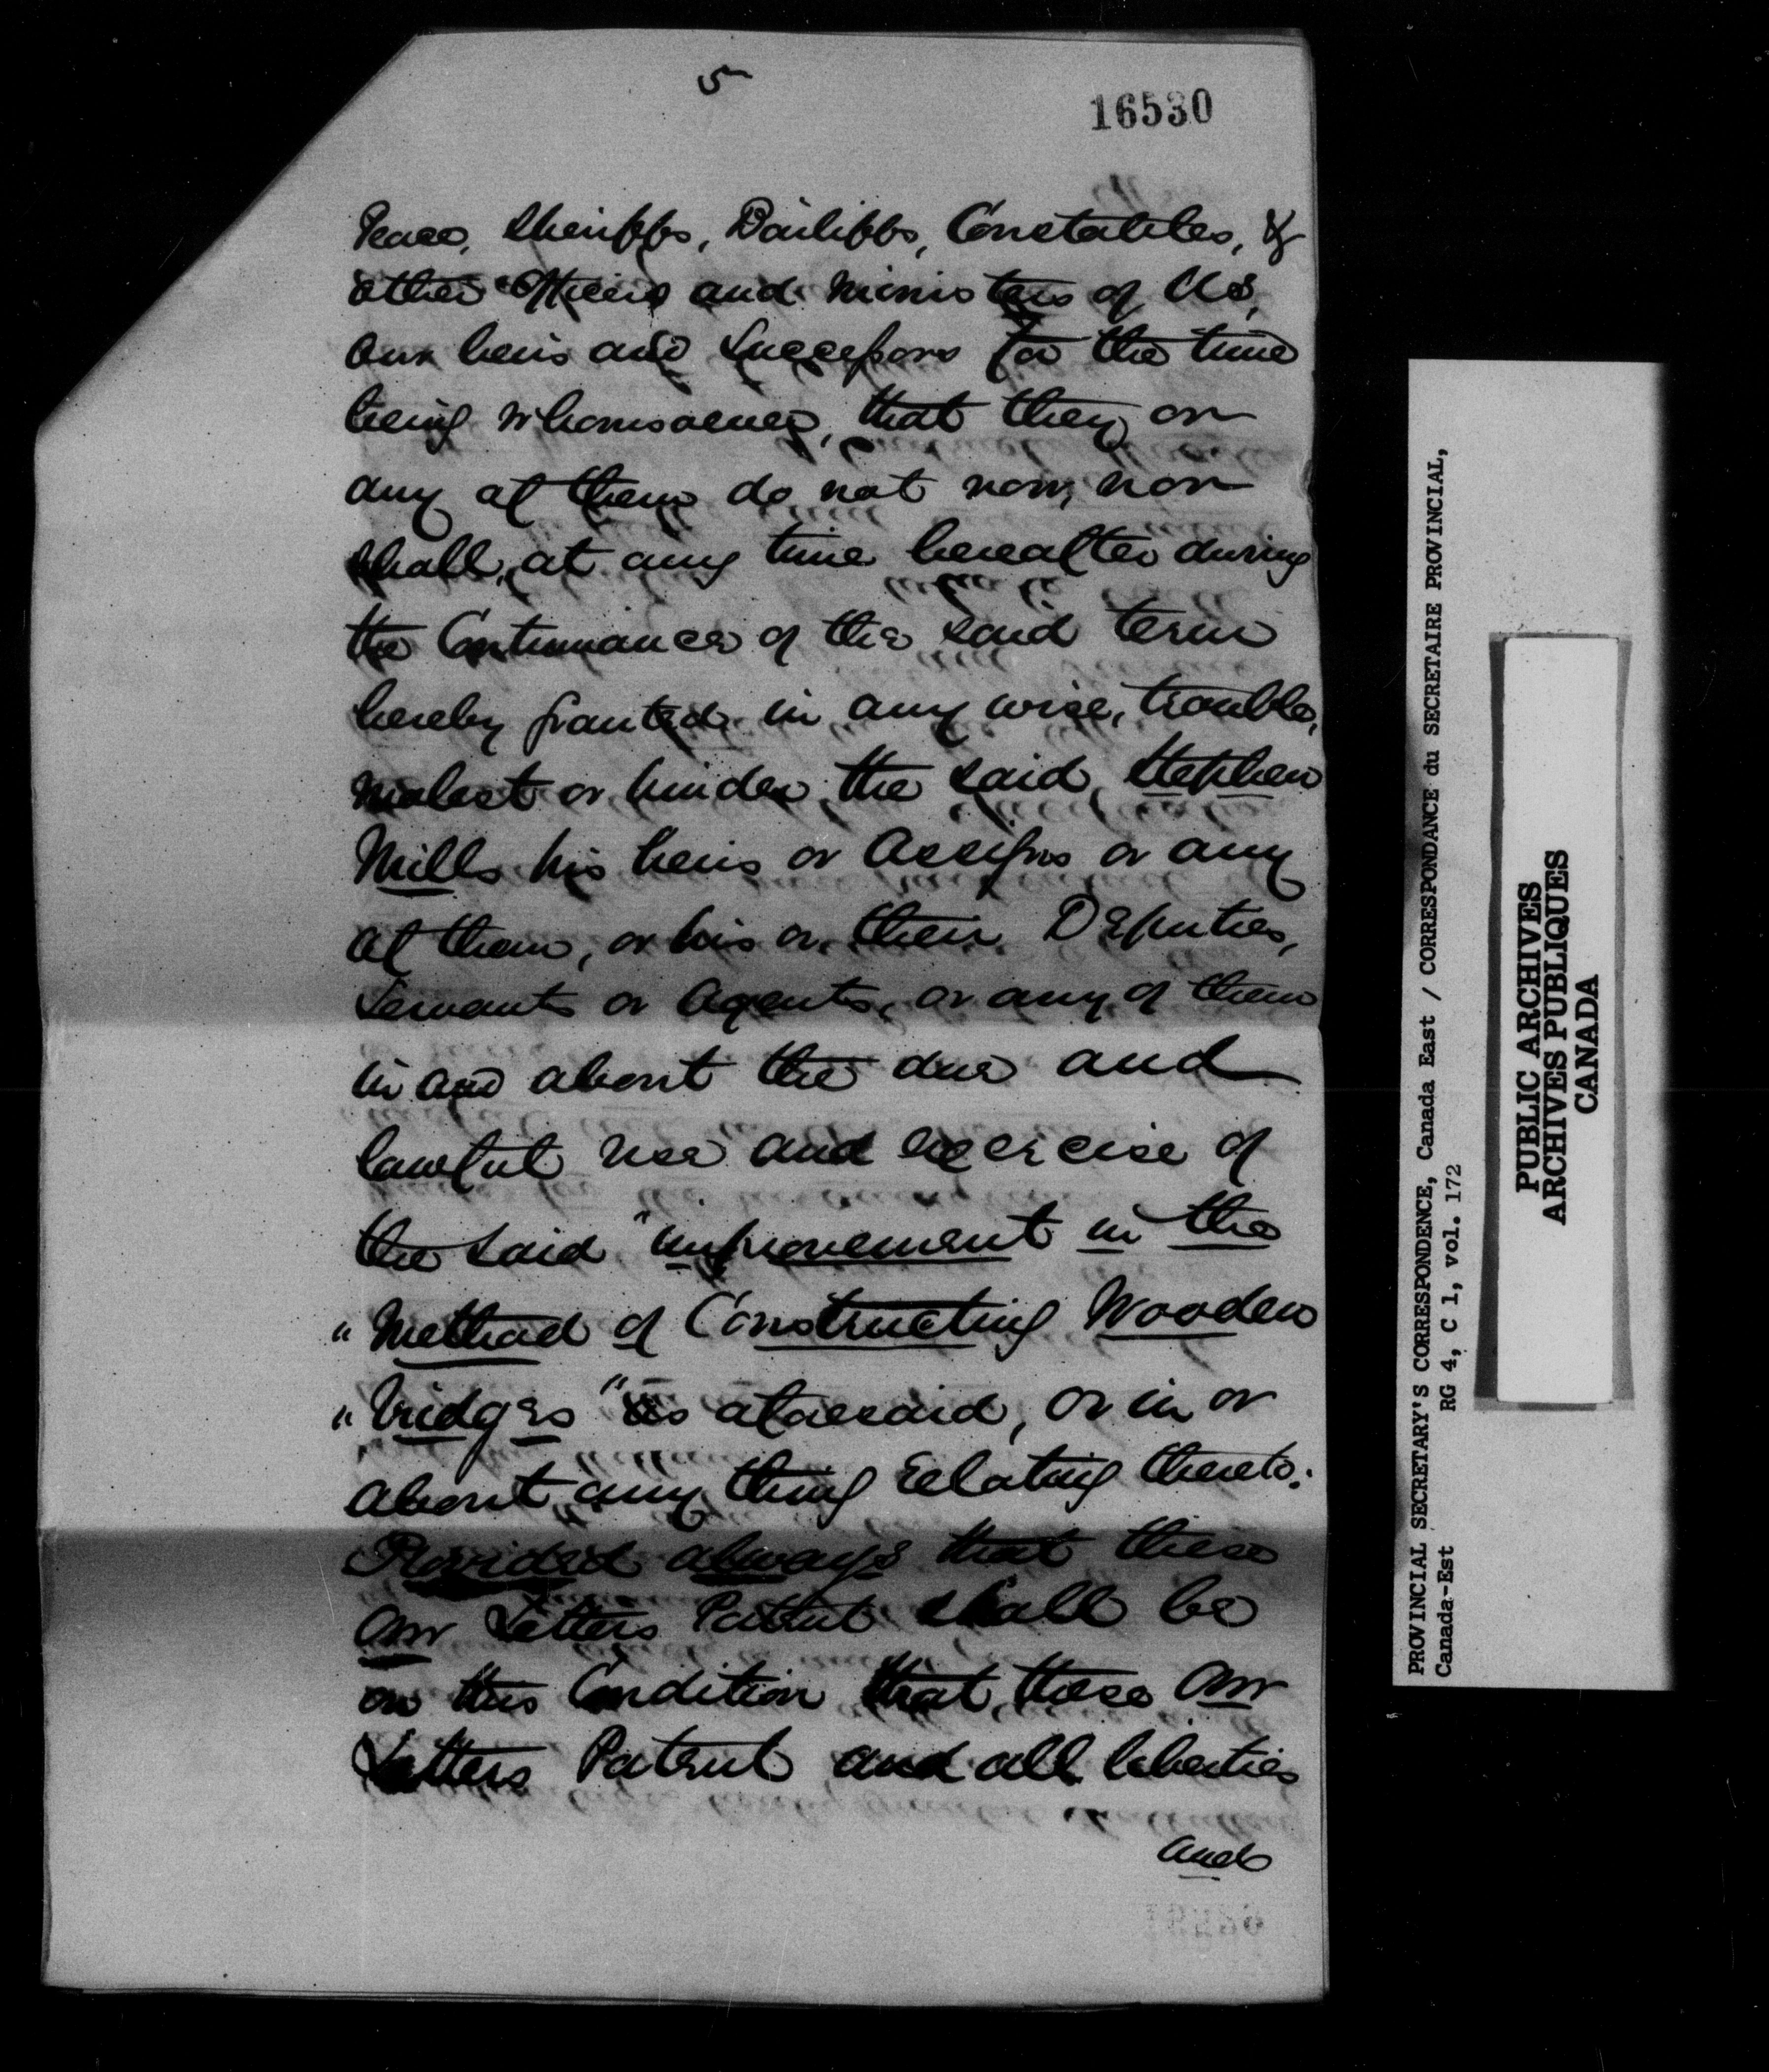 5
16530
Peace, Sheriffs, Bailiffs, Constables, &
other Officers and ministers of Us,
Our heirs and Successors for the time
being whomsoever, that they or
any of them do not now, nor
shall, at any time hereafter during
the Continuance of the said term
hereby granted in any wise, trouble,
molest or hinder the said Stephen
Mills his heirs or Assigns or any
of them, or his or their Deputies,
Servants or Agents, or any of them
in and about the due and
lawful use and exercise of
the said "improvement in the
"Method of Constructing Wooden
"bridges" as aforesaid, or in or
about any thing relating thereto:
Provided always that these
Our Letters Patent shall be
on this Condition that, these Our
Letters Patent and all liberties
and
PROVINCIAL SECRETARY'S CORRESPONDENCE, Canada East / CORRESPONDANCE du SECRETAIRE PROVINCIAL,
Canada-Est RG 4, C 1, vol. 172
PUBLIC ARCHIVES
ARCHIVES PUBLIQUES
CANADA